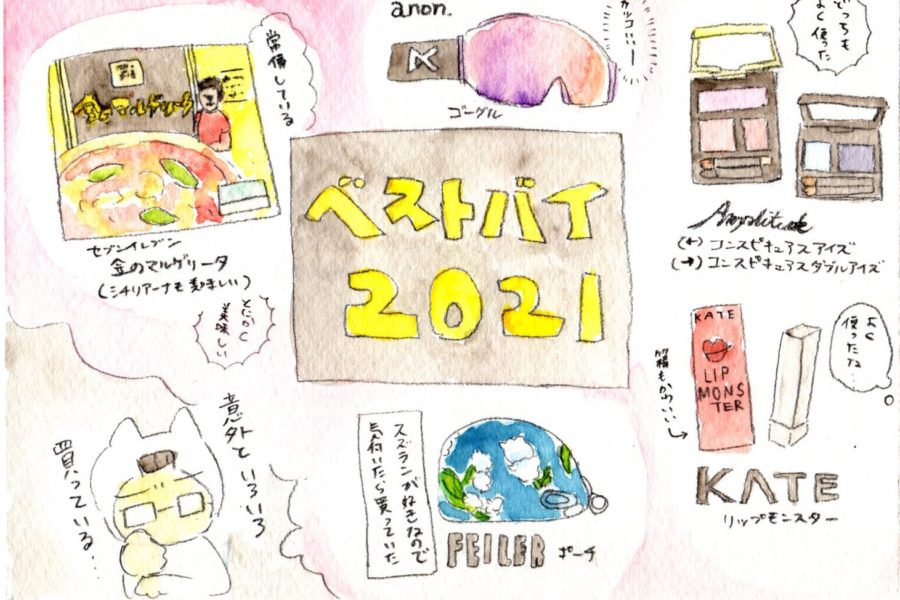 常備している
金のマルゲリータ
セブンイレブン
金のマルゲリータ
(シチリアーナも美味しい)
とにかく
美味しい
anon.
カッコいいー
ゴーグル
どっちも
よく使った
Amplitude
(←) コンスピキュアスアイズ
(→) コンスピキュアスダブルアイズ
ベストバイ
2021
KATE
LIP
MONS
TER
よく
使ったな
箱もかわいい
KATE
リップモンスター
スズランが好きなので
気付いたら買っていた
FEILER ポーチ
意外といろいろ
買っている…